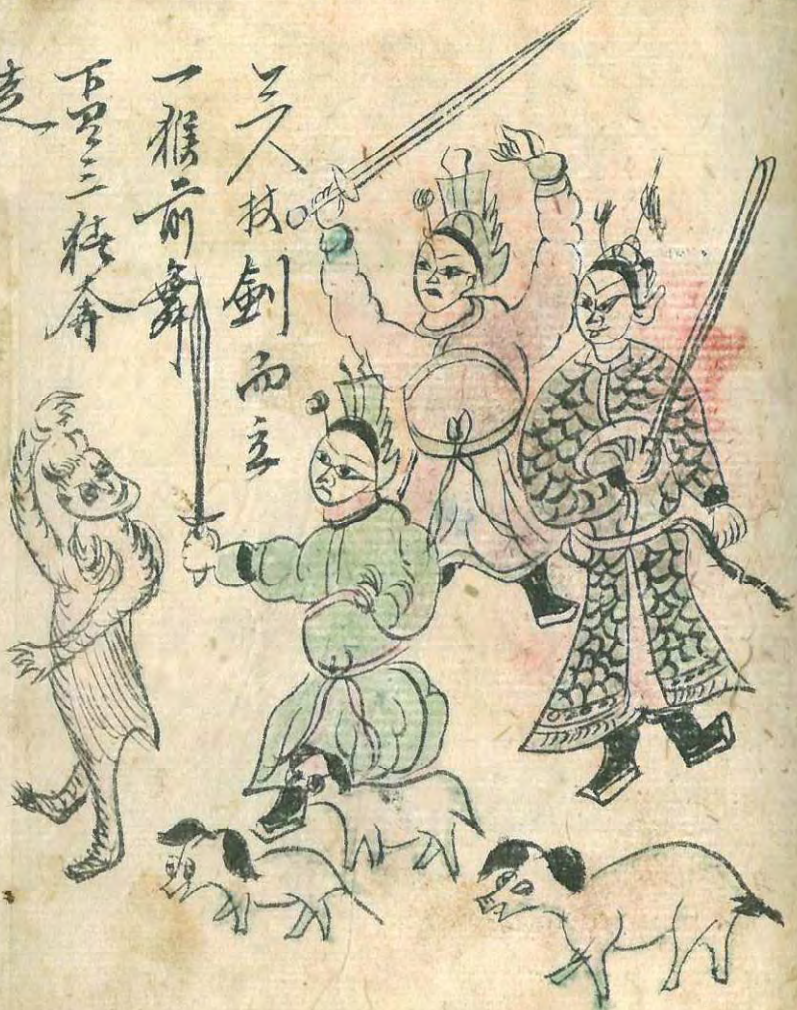 三人扙劍而立
一猴前舞
下男三猪奔
走